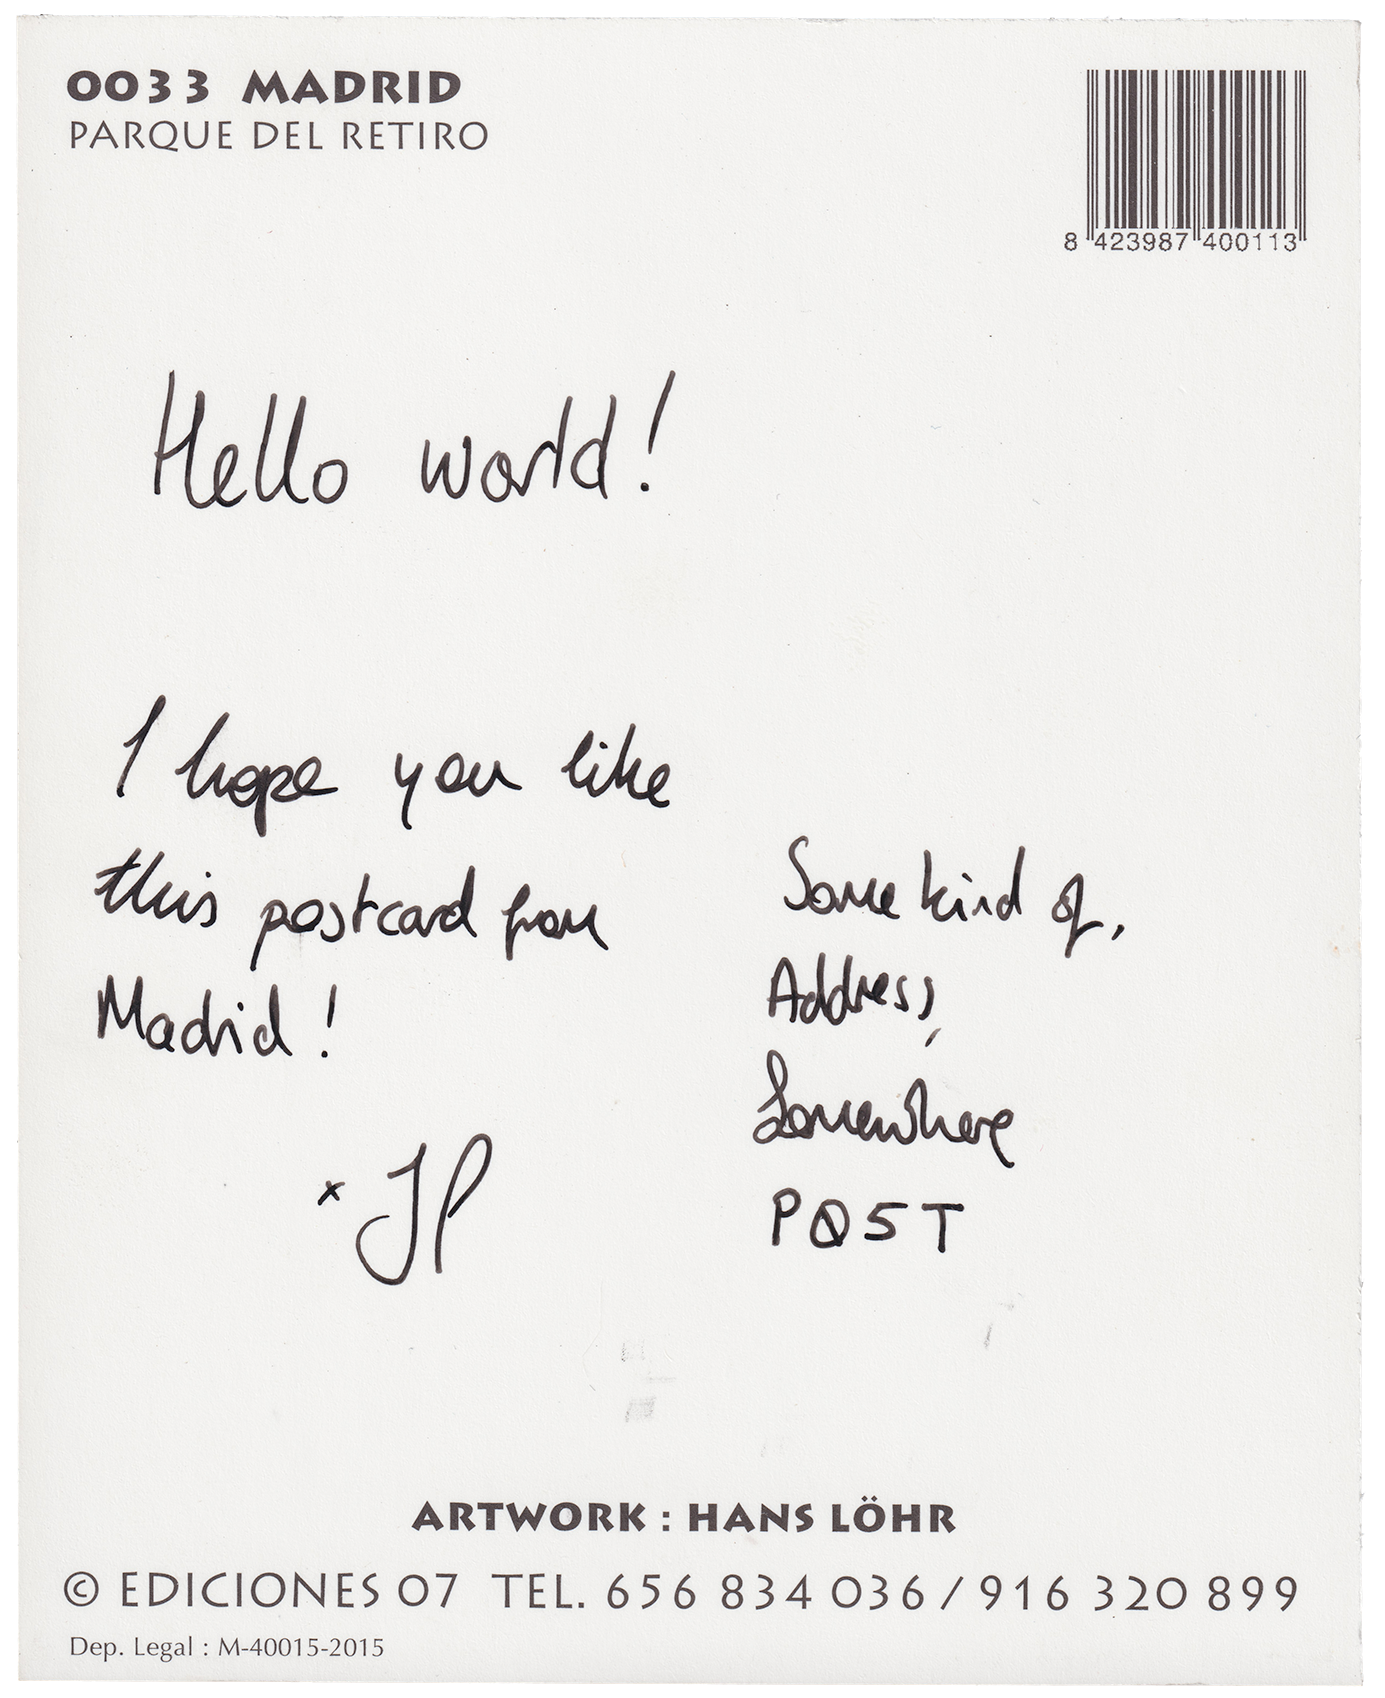 0033 MADRID
PARQUE DEL RETIRO
8 423987 400113
Hello world!
I hope you like
this postcard from
Madrid!
x JP
Some kind of,
Address,
Somewhere
PO5T
ARTWORK : HANS LÖHR
© EDICIONES 07 TEL. 656 834 036 / 916 320 899
Dep. Legal : M-40015-2015